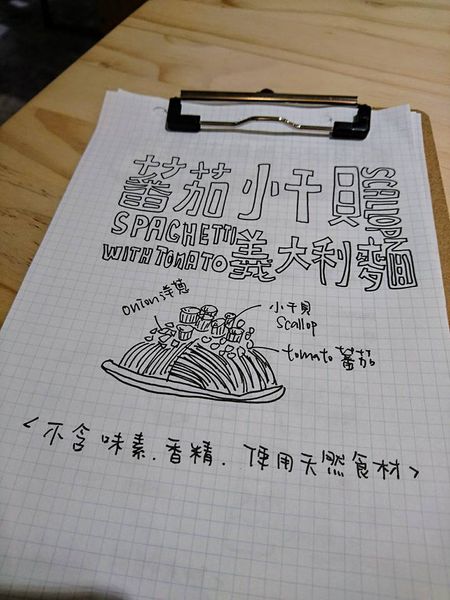 蕃茄小干貝
SCALLOP
SPAGHETTI
WITH TOMATO
義大利麵
onion 洋蔥
小干貝
Scallop
tomato 蕃茄
<不含味素.香精.使用天然食材>